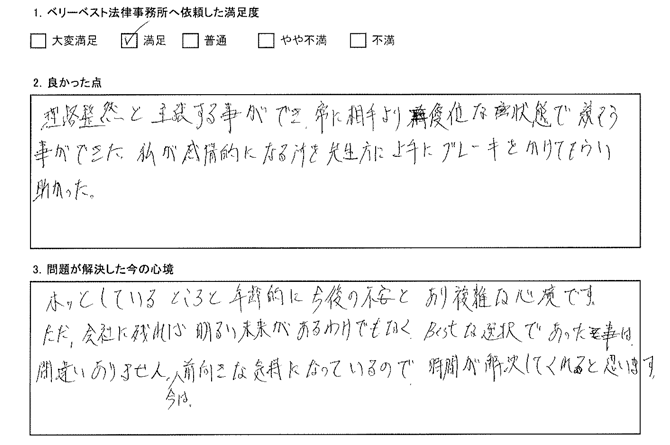 1. ベリーベスト法律事務所へ依頼した満足度
□ 大変満足 ☑ 満足 □ 普通 □ やや不満 □ 不満
2. 良かった点
理路整然と主張する事ができ、常に相手より優位な状態で戦う
事ができた。私が感情的になる時を先生方に上手にブレーキをかけてもらい
助かった。
3. 問題が解決した今の心境
ホッとしているところと年齢的に今後の不安とあり複雑な心境です。
ただ、会社に残れば明るい未来があるわけでもなく、Bestな選択であった事は
間違いありません。今は、前向きな気持になっているので、時間が解決してくれると思います